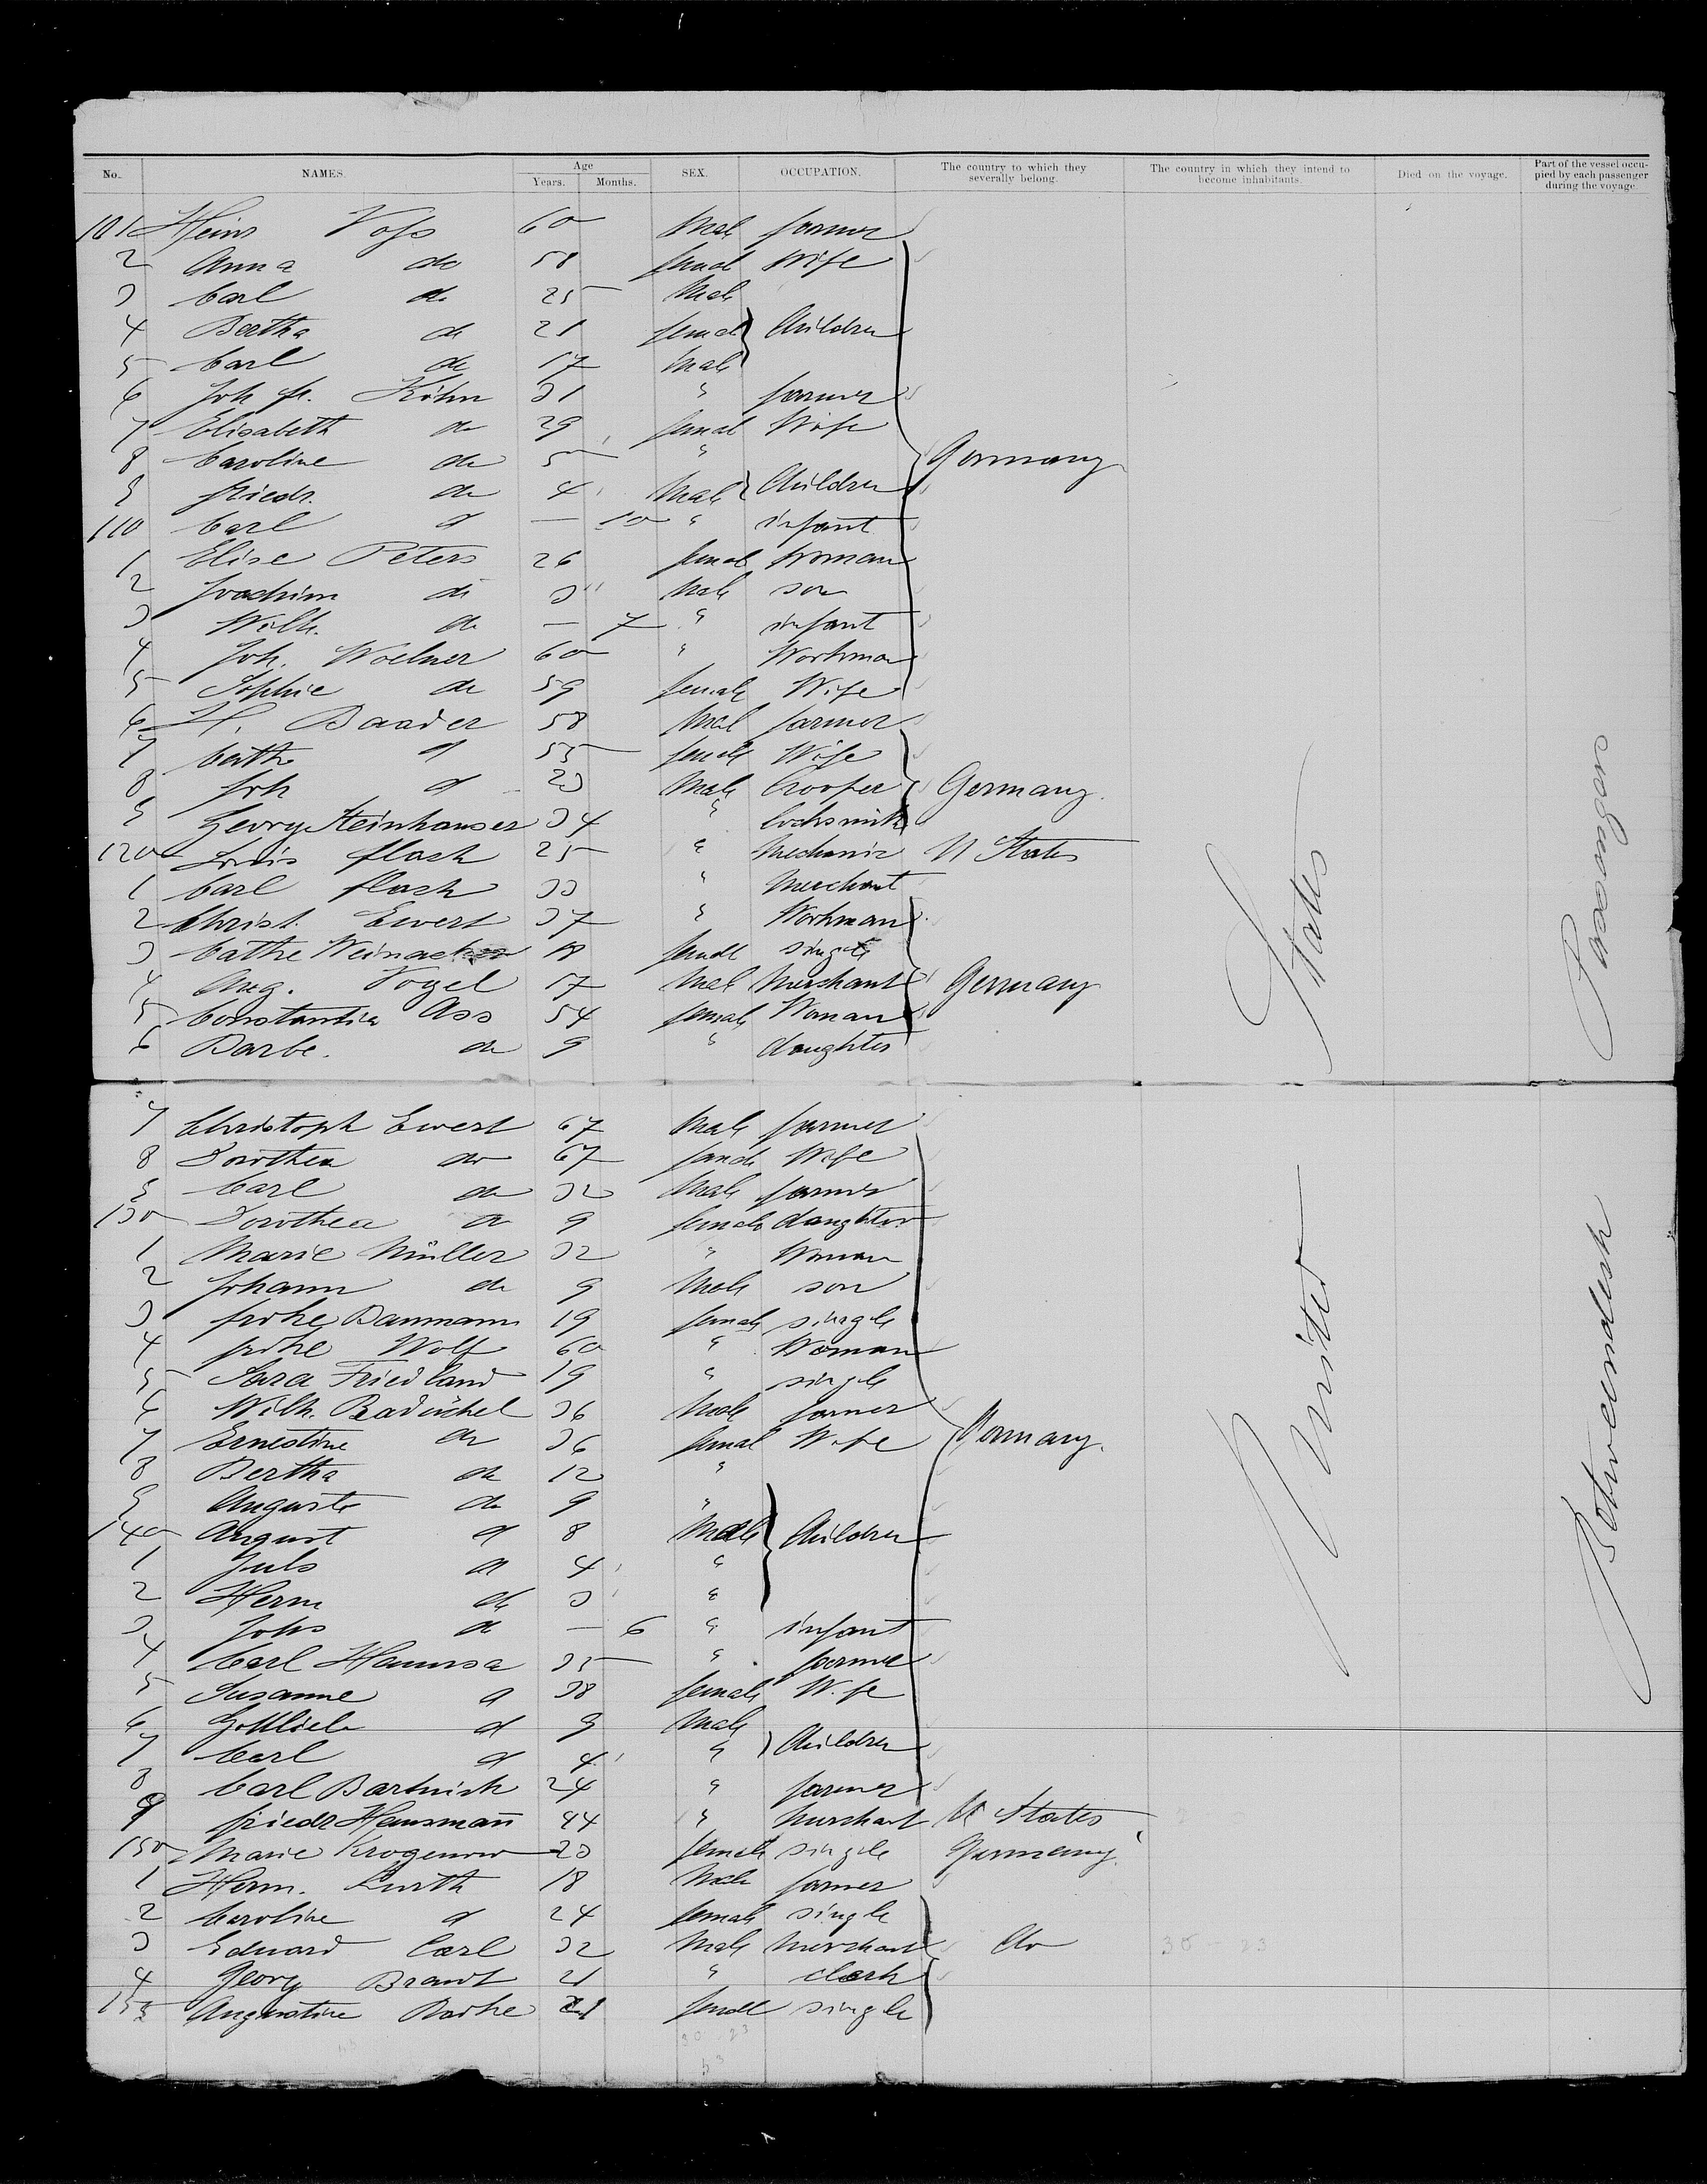 No. NAMES. Age Years. Months. SEX. OCCUPATION. The country to which they severally belong. The country in which they intend to become inhabitants. Died on the voyage. Part of the vessel occupied by each passenger during the voyage.
101 Heinr Voss 60 Male farmer
2 Anna do 58 femal Wife
3 Carl do 25 Male
4 Bertha do 21 femal Children
5 Carl do 17 Male
6 Joh fr. Köhn 31 " farmer
7 Elisabeth do 29 femal Wife
8 Caroline do 5 " Germany
9 friedr. do 4 Male Children
110 Carl d — 10 " infant
1 Elise Peters 26 femal Woman
2 Joachim do 3 Male son
3 Wilh. do — 7 " infant
4 Joh. Woelner 60 " Workman
5 Sophie do 59 female Wife
6 H. Baader 58 Mal farmer
7 Cathe d 55 female Wife
8 Joh d 23 Male Cooper Germany
9 Georg Steinhauser 34 " Locksmith
120 Louis flach 25 " Mechanic U States
1 Carl flach 33 " Merchant
2 Christ. Ewert 37 " Workman
3 Cathe 18 femal single
4 Aug. Vogel 17 Mal Merchant Germany
5 Constantia Ass 54 female Woman
6 Barbe. do 9 " daughter
7 Christoph Ewert 67 Male farmer
8 Dorothea do 67 female Wife
9 Carl do 32 Male farmer
130 Dorothea d 9 female daughter
1 Marie Müller 32 " Woman
2 Johann do 9 Male son
3 frdke Baumann 19 female single
4 frdke Wolf 60 " Woman
5 Sara Friedland 19 " single
6 Wilh. Radüchel 36 Male farmer
7 Ernestine do 36 femal Wife Germany.
8 Bertha do 12 "
9 Auguste do 9 "
140 August d 8 Male Children
1 Juls d 4 "
2 Herm do 3 "
3 Johs do — 6 " infant
4 Carl 35 " farmer
5 Susanne d 38 female Wife
6 Gottlieb d 9 Male
7 Carl d 4 " Children
8 Carl Bartnick 24 " farmer
9 friedr Hausmann 44 " Merchant U States
150 Marie Krogenow 23 female single Germany.
1 Herm. Kurth 18 Male farmer
2 Caroline d 24 female single
3 Eduard Carl 32 Male Merchant do
4 Georg Brandt 21 " clerk
155 Augustine Radke 21 femal single
United States
Betweendeck Passengers